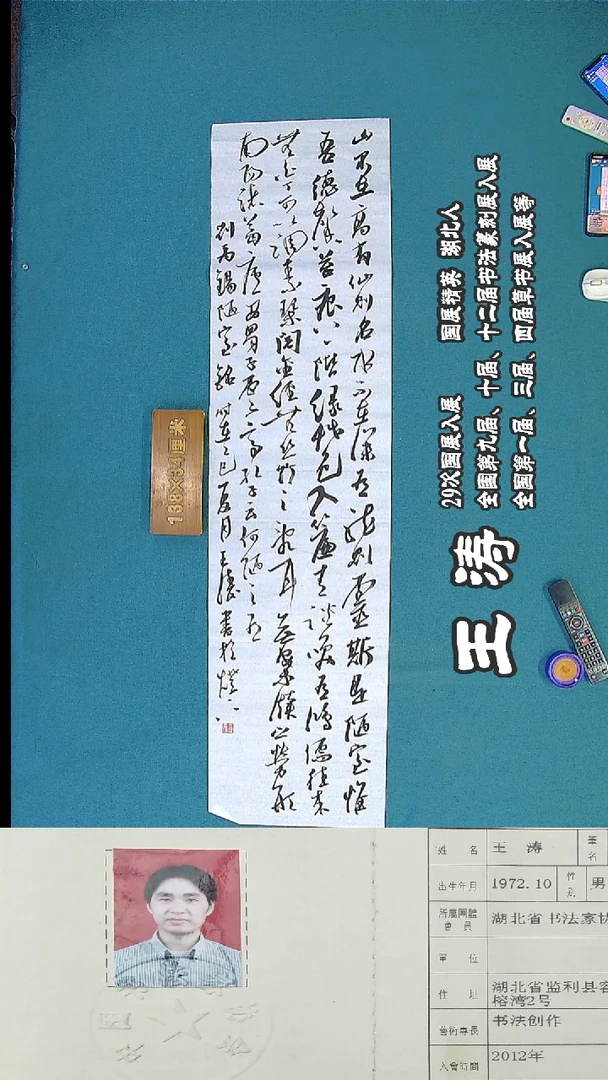 山不在高有仙则名水不在深有龙则灵斯是陋室惟
吾德馨苔痕上阶绿草色入帘青谈笑有鸿儒往来
无白丁可以调素琴阅金经无丝竹之乱耳无案牍之劳形
南阳诸葛庐西蜀子云亭孔子云何陋之有
刘禹锡陋室铭 乙巳夏月王涛书於
138×34厘米
29次国展入展 国展精英 湖北人
全国第九届、十届、十二届书法篆刻展入展
全国第一届、三届、四届草书展入展等
王涛
姓名 王涛 筆名
出生年月 1972.10 性别 男
所屬團體會員 湖北省书法家协
單位
住址 湖北省监利县容
榕湾2号
藝術專長 书法创作
入會時間 2012年